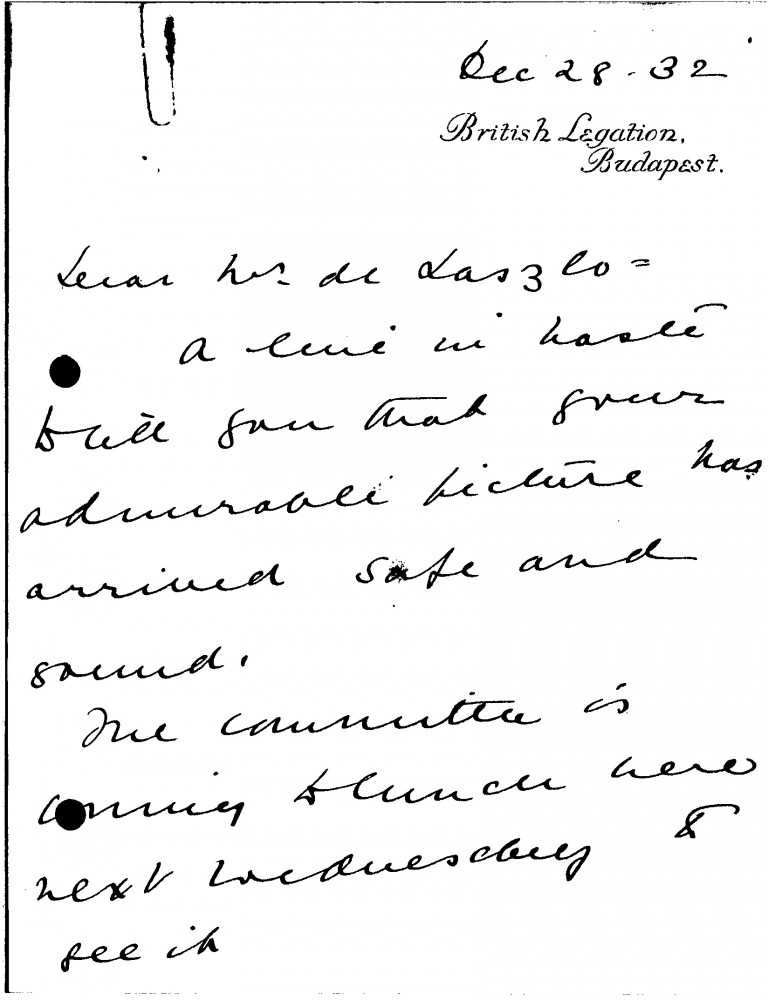 Dec 28 - 32
British Legation,
Budapest.
Dear Mr. de Laszlo =
A line in haste
to tell you that your
admirable picture has
arrived safe and
sound.
The committee is
coming to lunch here
next Wednesday to
see it